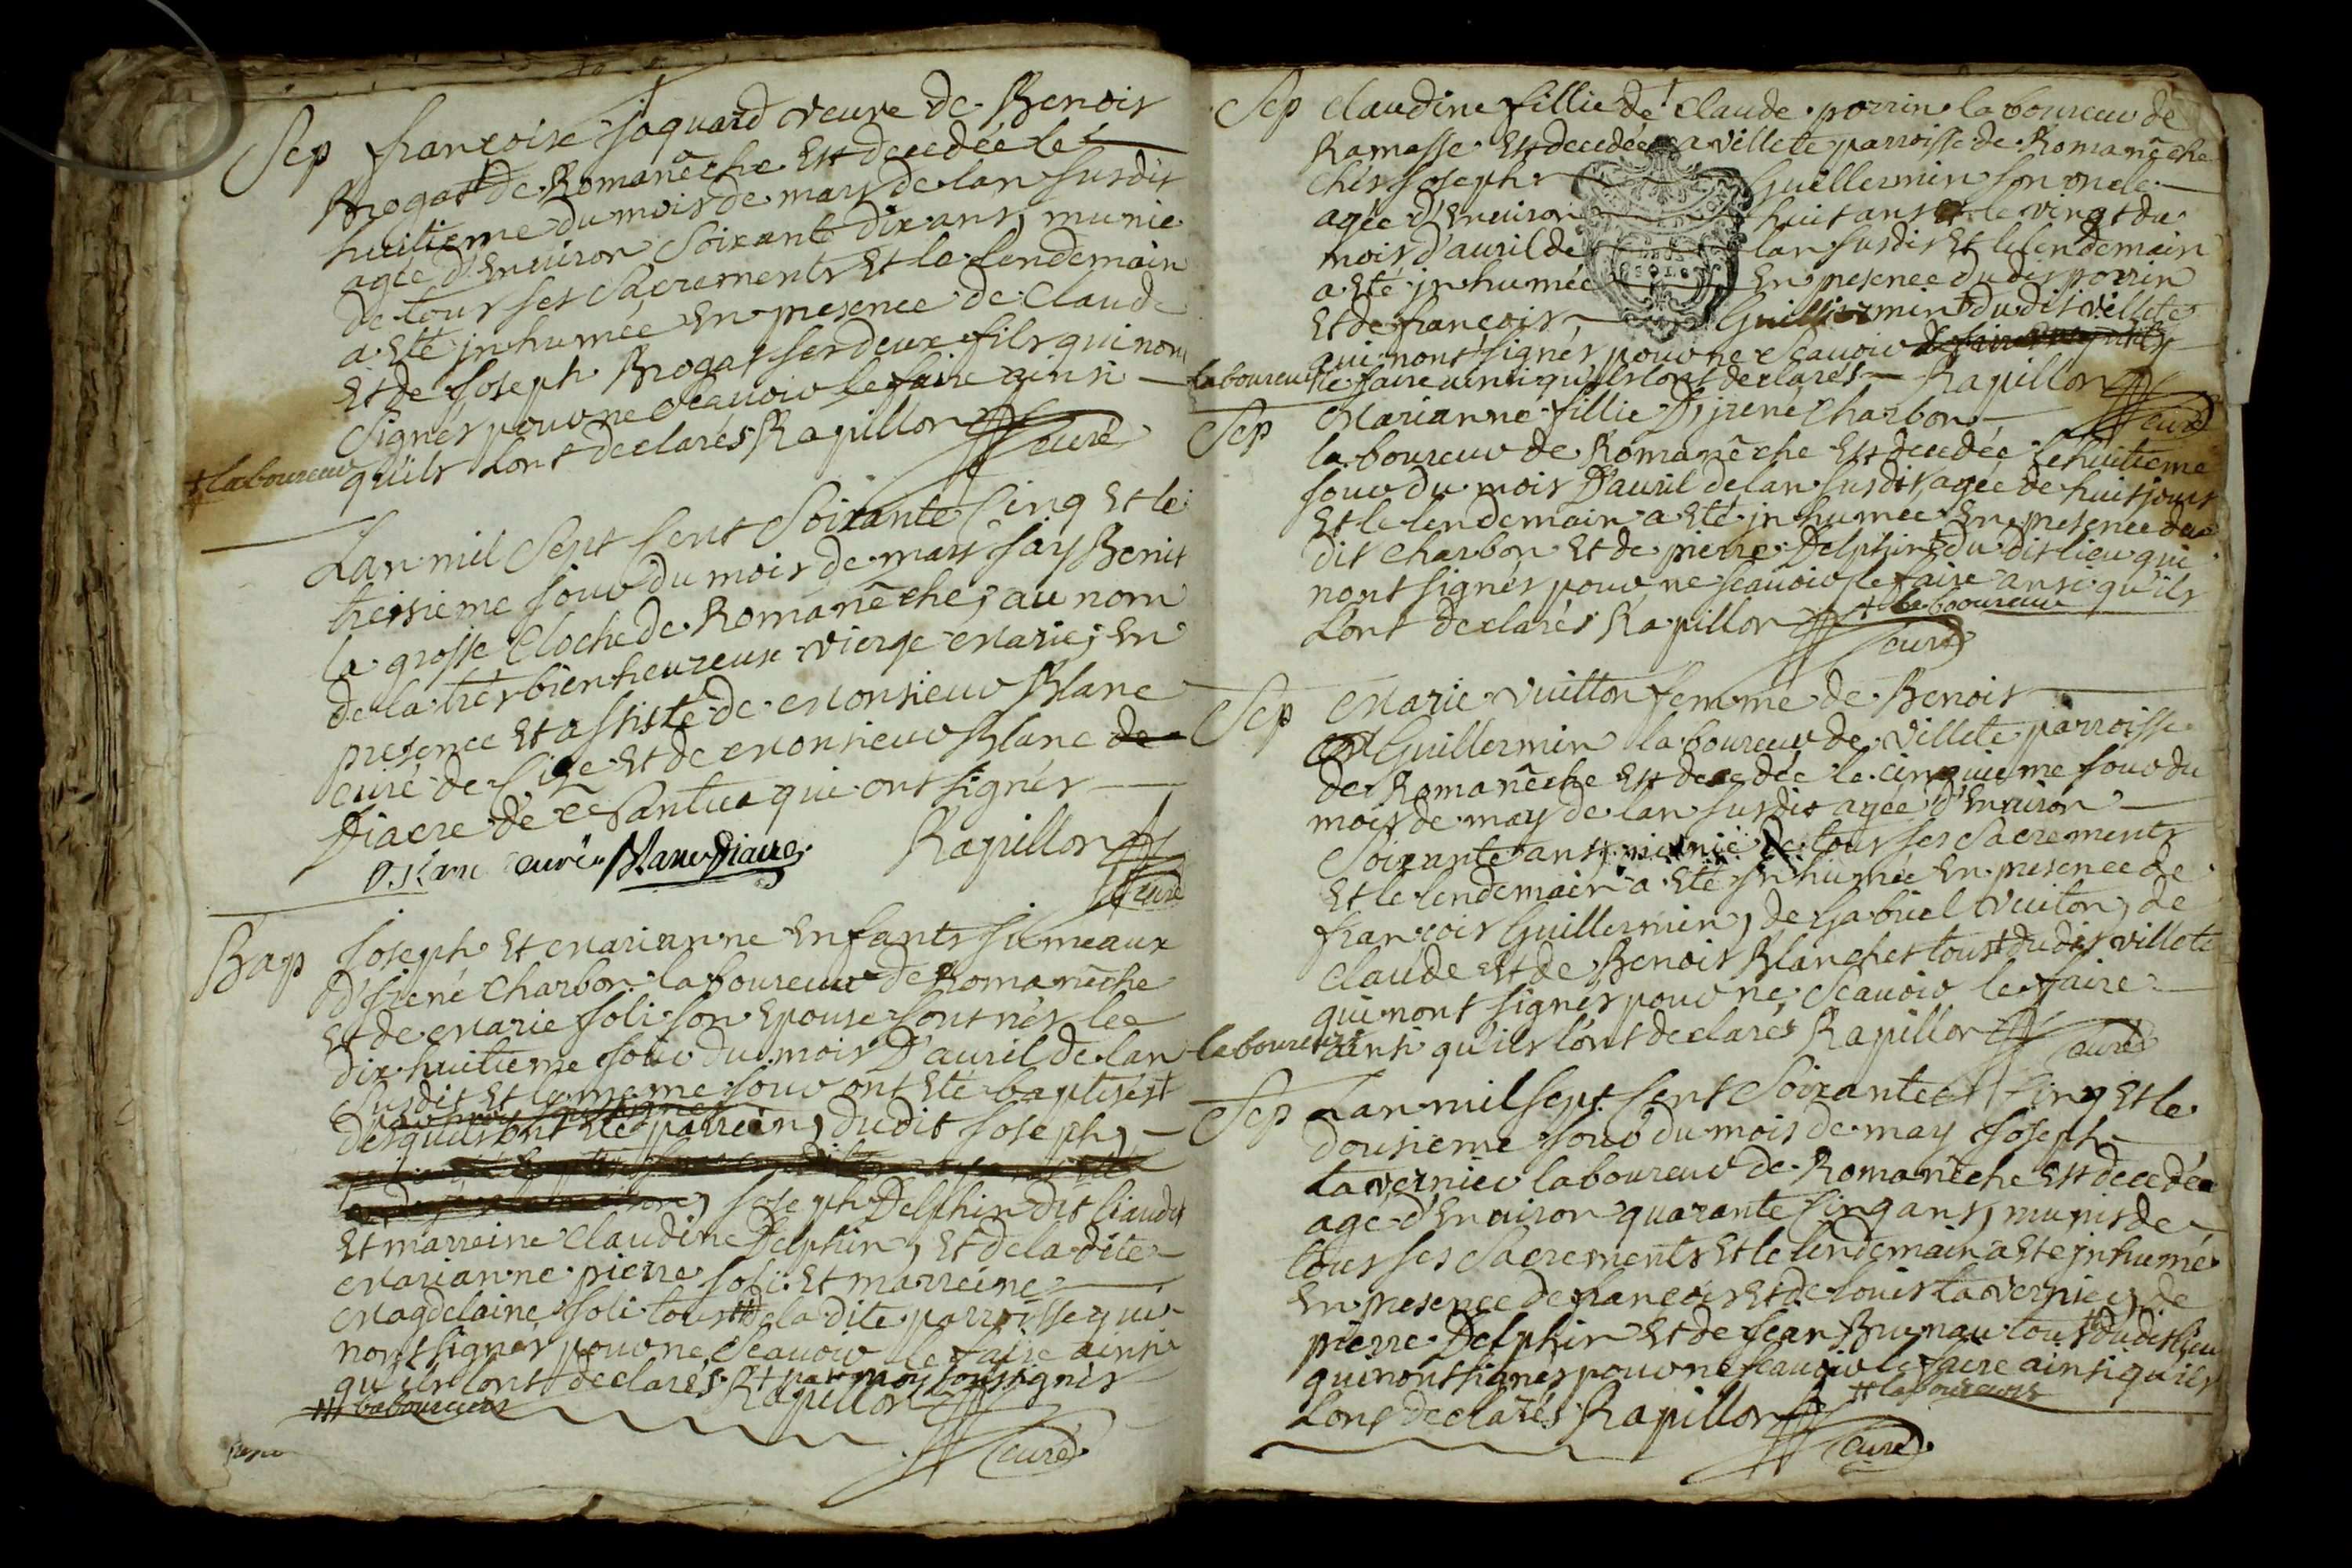 Sep françoise Jaquard veuve de Benoit
Brogat + de Romanêche Est decedée le
huitieme du mois de mars de lan susdit
agée d'Environ Soixante dix ans, munie
de tous ses Sacrements Et le lendemain
a Eté inhumée En presence de Claude
Et de Joseph Brogat ses deux fils qui nont
Signés pour ne Scavoir le faire ainsi
+ laboureur quils lont declarés Rapillon
curé
Lan mil Sept Cent Soixante Cinq Et le
treisieme jour du mois de mars jay Benit
la grosse Cloche de Romanêche, au nom
de la très bienheureuse vierge Marie, En
presence Et assisté de Monsieur Blanc
curé de Et de Monsieur Blanc de
Diacre de Nantua qui ont signés
Blanc curé Blanc Diacre Rapillon
curé
Bap Joseph Et Marianne Enfants jumeaux
d'Irené Charbon laboureur de Romanêche
Et de Marie Joli son Epouse sont nés le
dix huitieme jour du mois D'avril de lan
Susdit Et le meme jour ont Eté baptisés +
par moy soussigné
desquels ont Eté parrein, du dit Joseph,
Joseph Delphin dit Claudis
Et marreine Claudine Delphin, Et de la dite
Marianne pierre Joli Et marreine
Magdelaine Joli tous ## de la dite parroisse qui
nont signés pour ne Scavoir le faire ainsi
qu'ils lont declarés + par moy soussignés
## laboureurs Rapillon
curé
Sep Claudine fillie de Claude porrin laboureur de
Ramasse Est decedée a villete parroisse de Romanêche
chès Joseph Guillermin son oncle
agée d'Environ huit ans le vingt du
mois d'avril de lan susdit Et le lendemain
a Eté inhumée En presence du dit porrin
Et de françois Guillermin + du dit villete
qui nont signés pour ne scavoir
laboureur le faire ainsi qu'ils lont declarés Rapillon
curé
Sep Marianne fillie D'irené Charbon
laboureur de Romanêche Est decedée le huitieme
jour du mois D'avril de lan susdit, agée de huit jours
Et le lendemain a Eté inhumée En presence du
dit Charbon Et de pierre Delphin + du dit lieu qui
nont signés pour ne scavoir le faire ansi qu'ils
Lont declarés Rapillon + laboureur
curé
Sep Marie vuitton femme de Benoit
Guillermin laboureur de villete parroisse
de Romanêche Est decedée le cinquieme jour du
mois de may de lan susdit agée d'Environ
Soixante ans, munie de tous ses Sacrements
Et le lendemain a Eté inhumée En presence de
françois Guillermin, de Gabriel vuiton, de
Claude Et de Benoit Blanchet tous + du dit villete
qui nont signés pour ne Scavoir le faire
laboureurs ainsi qu'ils lont declarés Rapillon
curé
Sep Lan mil Sept Cent Soixante Cinq Et le
dousieme jour du mois de may Joseph
tavernier laboureur de Romanêche Est decedée
agé d'Environ quarante Cinq ans, munis de
tous ses Sacrements Et le lendemain a Eté inhumé
En presence de françois Et de louis tavernier, de
pierre Delphin Et de Jean Brunau tous ## du dit lieu
qui nont signés pour ne scavoir le faire ainsi qu'ils
Lont declarés Rapillon ## laboureurs
curé